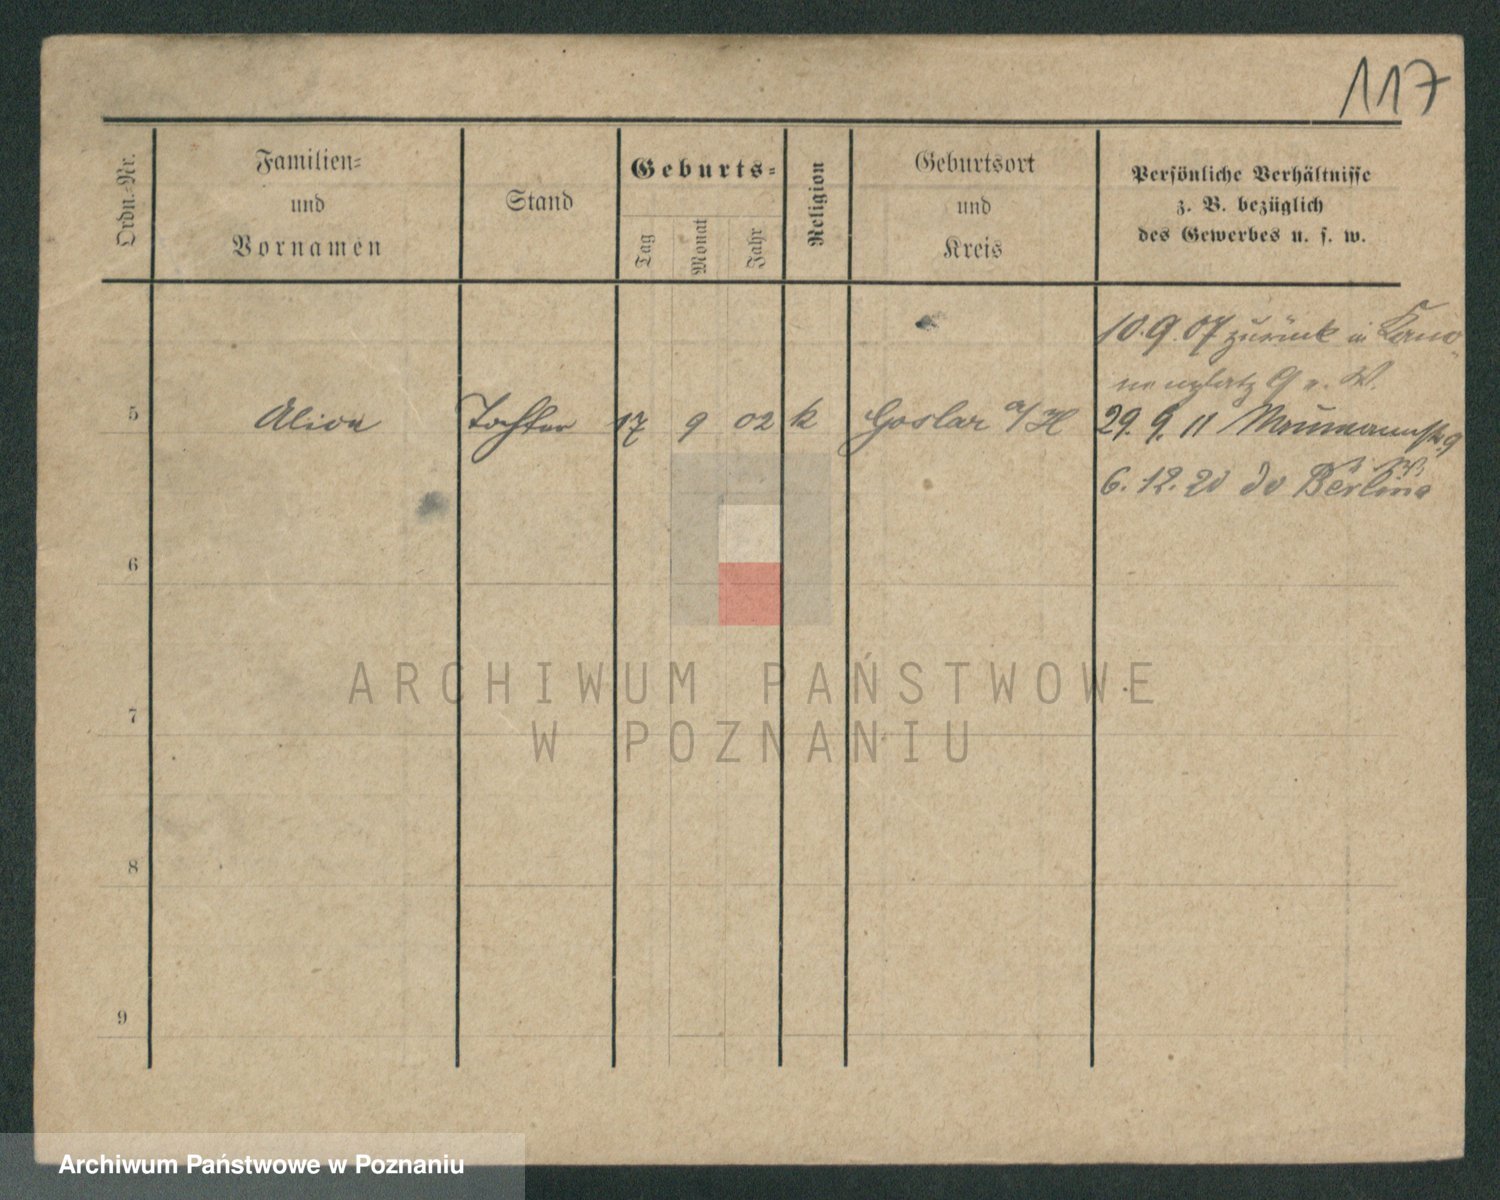 117
Ordn.-Nr.
Familien-
und
Vornamen
Stand
Geburts-
Tag
Monat
Jahr
Religion
Geburtsort
und
Kreis
Persönliche Verhältnisse
z. B. bezüglich
des Gewerbes u. s. w.
10.9.07 zurück in Kano
nenplatz 9 v. W.
5 Alice Tochter 17 9 02 k Goslar a/H 29. 9. 11
6. 12. 20 do Berlin
6
7
8
9
ARCHIWUM PAŃSTWOWE
W POZNANIU
Archiwum Państwowe w Poznaniu